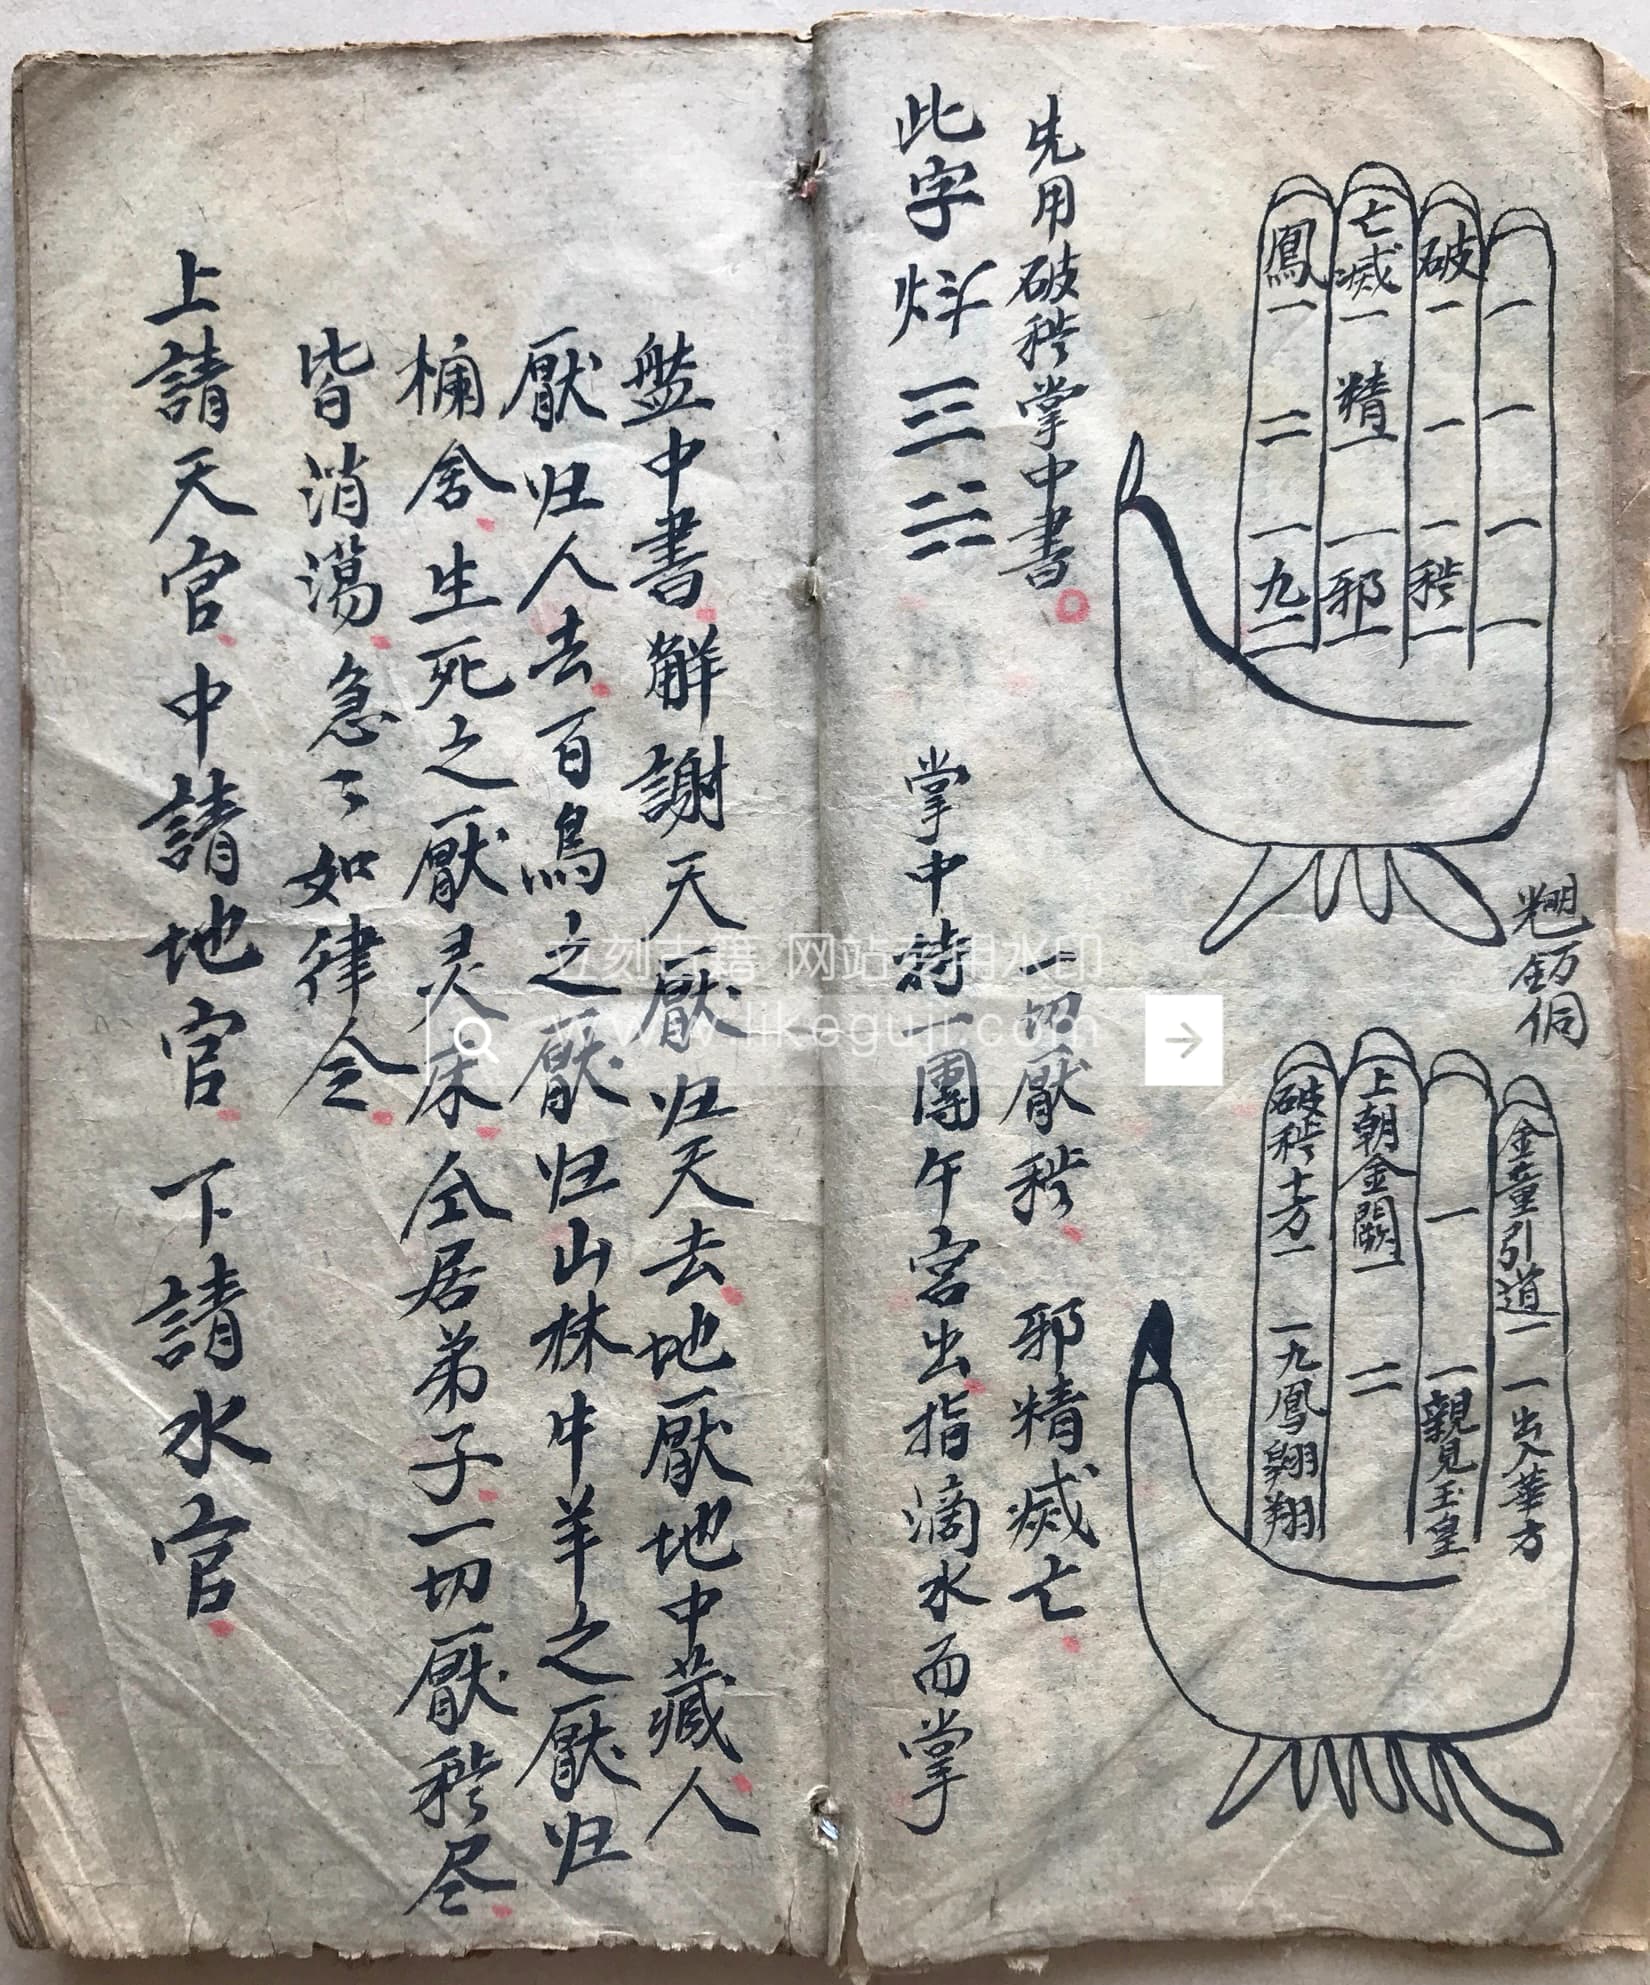 破
一
一
一
秽
一
亡
滅
一
精
一
一
邪
一
鳳
一
二
一
九
二
金童引道一
一出入華方
一
一親見玉皇
上朝金闕一
二
破秽十方一
一九鳳翱翔
先用破秽掌中書
一切厭秽 邪精滅亡
此字
掌中持一團午宫出指滴水而掌
盤中書觧謝天厭归天去地厭地中藏人
厭归人去百鳥之厭归山林牛羊之厭归
欄舍生死之厭灵床仝居弟子一切厭秽尽
皆消蕩急々如律令
上請天官中請地官下請水官
立刻古籍 网站专用水印
www.likeguji.com